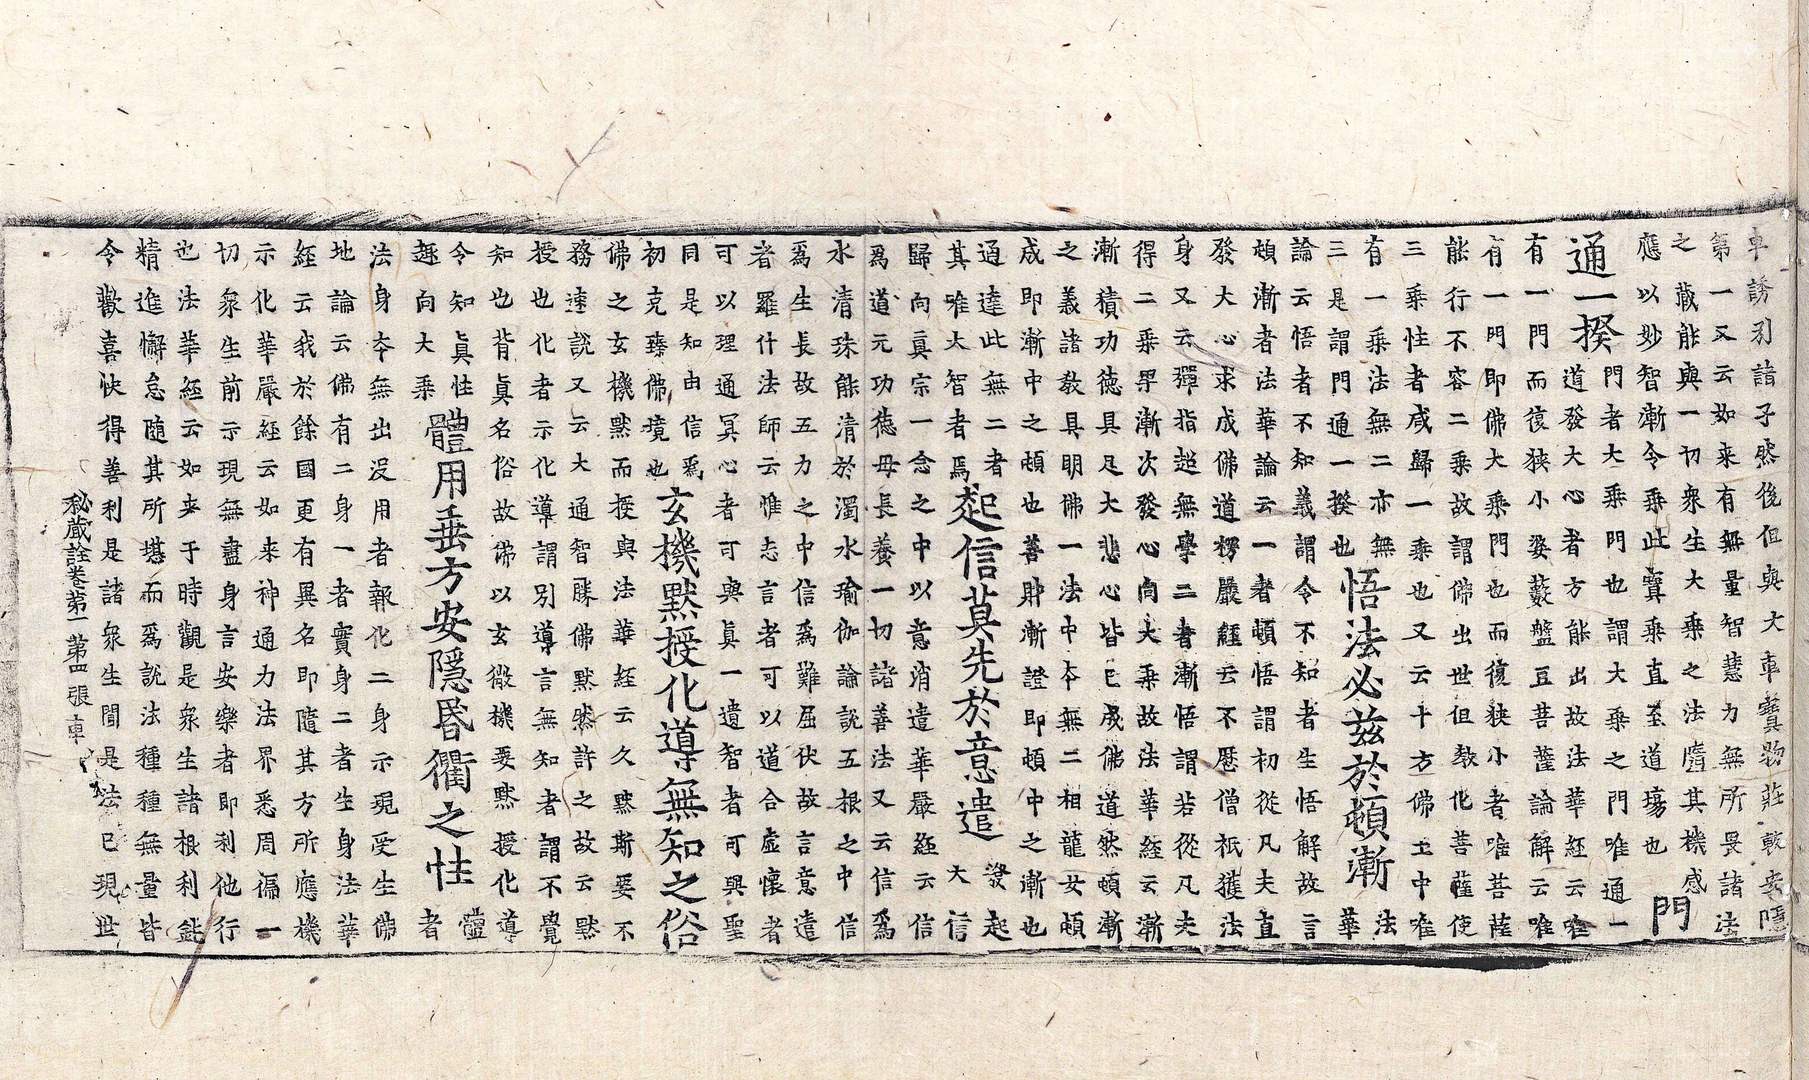 車誘引諸子然後但與大車寶物莊嚴安隱
第一又云如來有無量智慧力無所畏諸法
之藏能與一切衆生大乘之法隨其機感
應以妙智漸令乘此寶乘直至道場也
門
通一揆
門者大乘門也謂大乘之門唯通一
道發大心者方能出故法華經云唯
有一門而復狹小婆藪盤豆菩薩論解云唯
有一門即佛大乘門也而復狹小者唯菩薩
能行不容二乘故謂佛出世但教化菩薩使
三乘性者咸歸一乘也又云十方佛土中唯
有一乘法無二亦無
三是謂門通一揆也
悟法必兹於頓漸
法
華
論云悟者不知義謂令不知者生悟解故言
頓漸者法華論云一者頓悟謂初從凡夫直
發大心求成佛道楞嚴經云不歷僧祇獲法
身又云彈指超無學二者漸悟謂若從凡夫
得二乘果漸次發心向大乘故法華經云漸
漸積功德具足大悲心皆已成佛道然頓漸
之義諸教具明佛一法中本無二相龍女頓
成即漸中之頓也善財漸證即頓中之漸也
通達此無二者
其唯大智者焉
起信莫先於意遣
發起
大信
歸向真宗一念之中以意消遣華嚴經云信
爲道元功德母長養一切諸善法又云信爲
水清珠能清於濁水瑜伽論說五根之中信
爲生長故五力之中信爲難屈伏故言意遣
者羅什法師云惟忘言者可以道合虛懷者
可以理通冥心者可與真一遣智者可與聖
同是知由信爲
初克臻佛境也
玄機默授化導無知之俗
佛之玄機默而授與法華經云久默斯要不
務速說又云大通智勝佛默然許之故云默
授也化者示化導謂別導言無知者謂不覺
知也背真名俗故佛以玄微機要默授化道
令知真性
趣向大乘
體用垂方安隱昏衢之性
體
者
法身本無出沒用者報化二身示現受生佛
地論云佛有二身一者實身二者生身法華
經云我於餘國更有異名即隨其方所應機
示化華嚴經云如來神通力法界悉周徧一
切衆生前示現無盡身言安樂者即利他行
也法華經云如來于時觀是衆生諸根利鈍
精進懈怠隨其所堪而爲說法種種無量皆
令歡喜快得善利是諸衆生聞是法已現世
秘藏詮卷第一 第四張